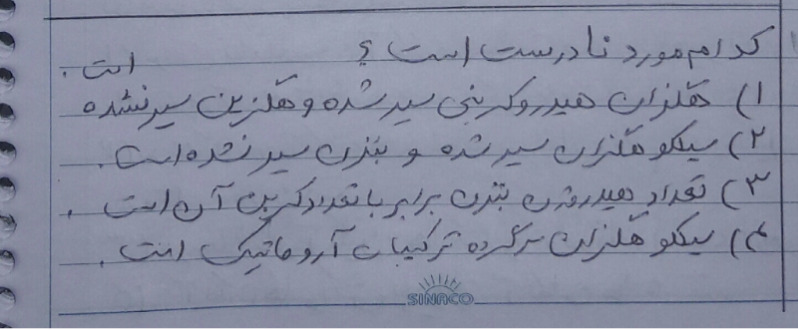 کدام مورد نادرست است؟
۱) هگزان هیدروکربنی سیر شده و هگزین سیر نشده است.
۲) سیکلو هگزان سیر شده و بنزن سیر نشده است.
۳) تعداد هیدروژن بنزن برابر با تعداد کربن آن است.
۴) سیکلو هگزان سرگرده ترکیبات آروماتیک است.
SINACO